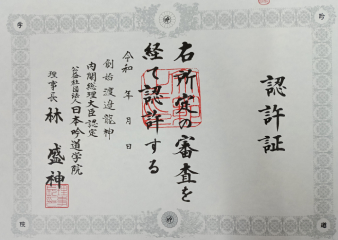 認許証
右所定の審査を
経て認許する
令和 年 月 日
創始 渡邉龍神
内閣総理大臣認定
公益社団法人日本吟道学院
理事長 林 盛神
吟
道
学
院